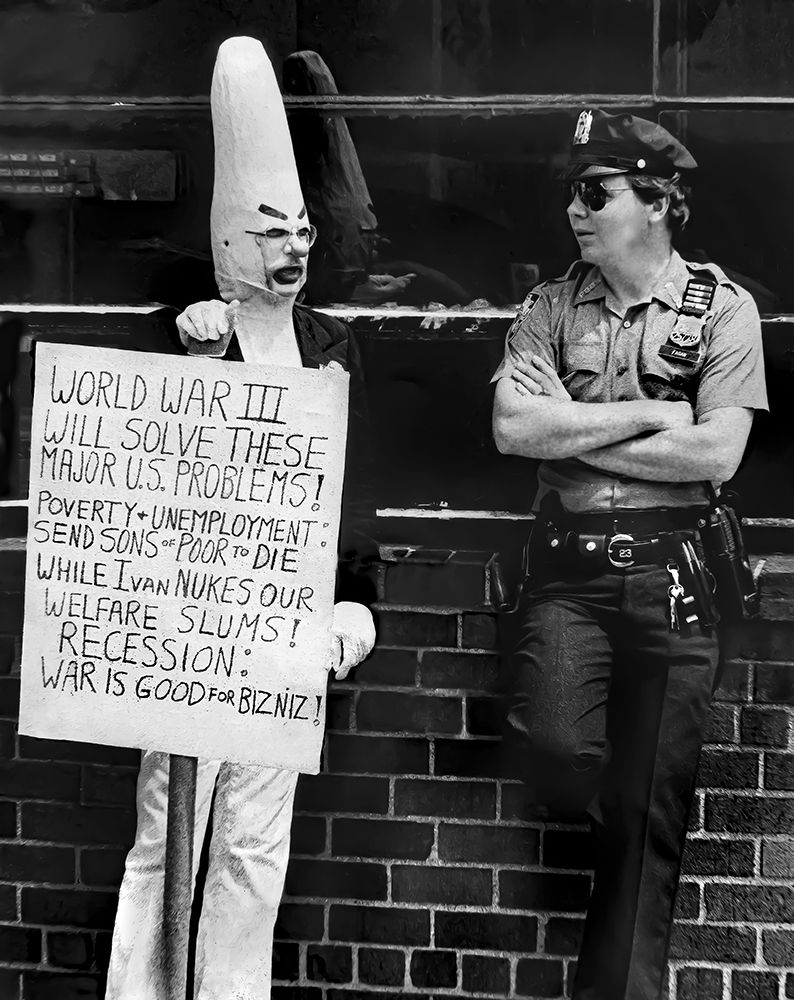 WORLD WAR III
WILL SOLVE THESE
MAJOR U.S. PROBLEMS!
POVERTY + UNEMPLOYMENT:
SEND SONS OF POOR TO DIE
WHILE IVAN NUKES OUR
WELFARE SLUMS!
RECESSION:
WAR IS GOOD FOR BIZNIZ!
23